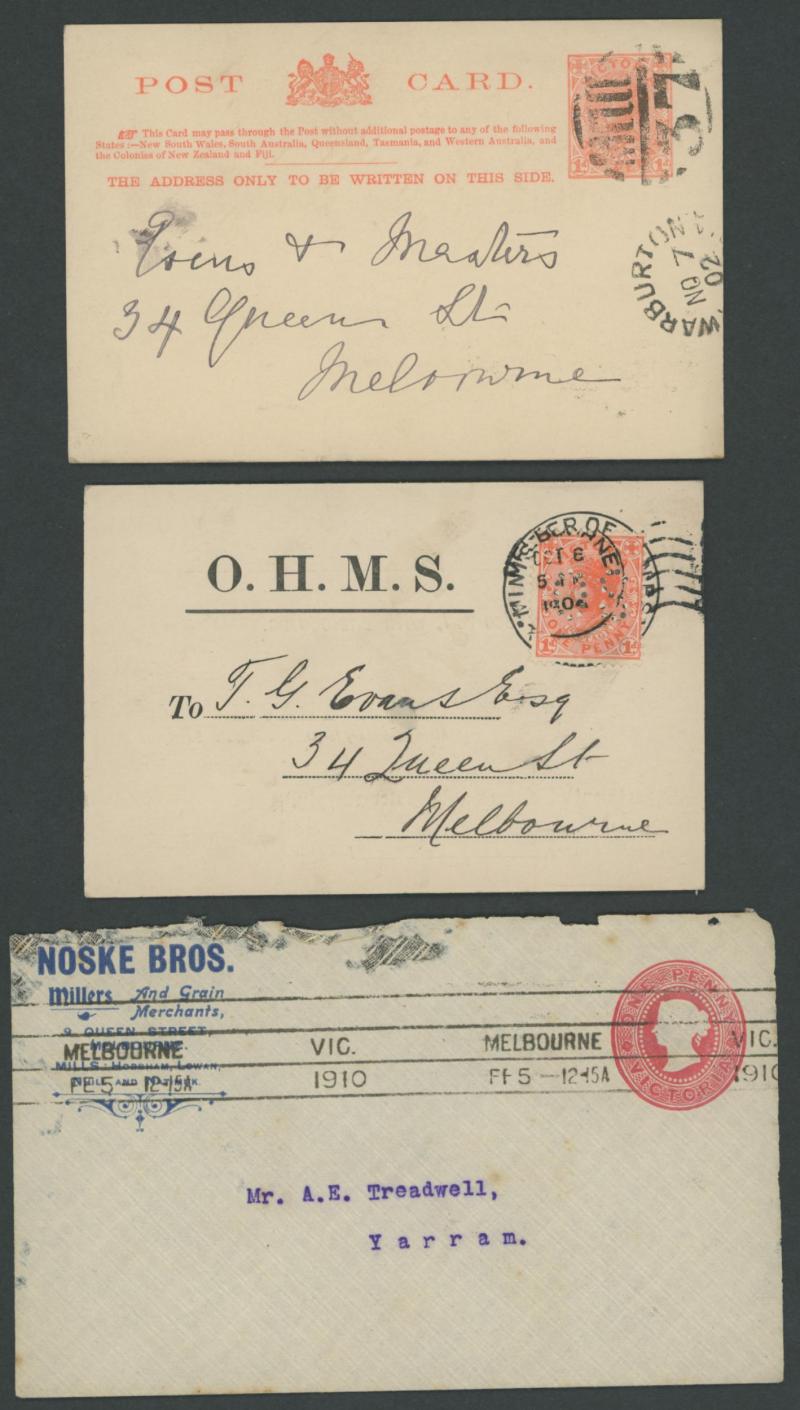 POST CARD.
This Card may pass through the Post without additional postage to any of the following
States:—New South Wales, South Australia, Queensland, Tasmania, and Western Australia, and
the Colonies of New Zealand and Fiji.
THE ADDRESS ONLY TO BE WRITTEN ON THIS SIDE.
& Masters
34 Queen St
Melbourne
WARBURTON
NO 7
02
O. H. M. S.
OCT 8
ONE PENNY
1d 1d
To T. G. Evans Esq
34 Queen St
Melbourne
NOSKE BROS.
Millers And Grain
Merchants,
9 QUEEN STREET,
MELBOURNE.
MILLS: HORSHAM, LOWAN,
MELBOURNE VIC. MELBOURNE VIC.
FE 5 — 12·15A 1910 FE 5 — 12·15A 1910
ONE PENNY
VICTORIA
Mr. A.E. Treadwell,
Yarram.